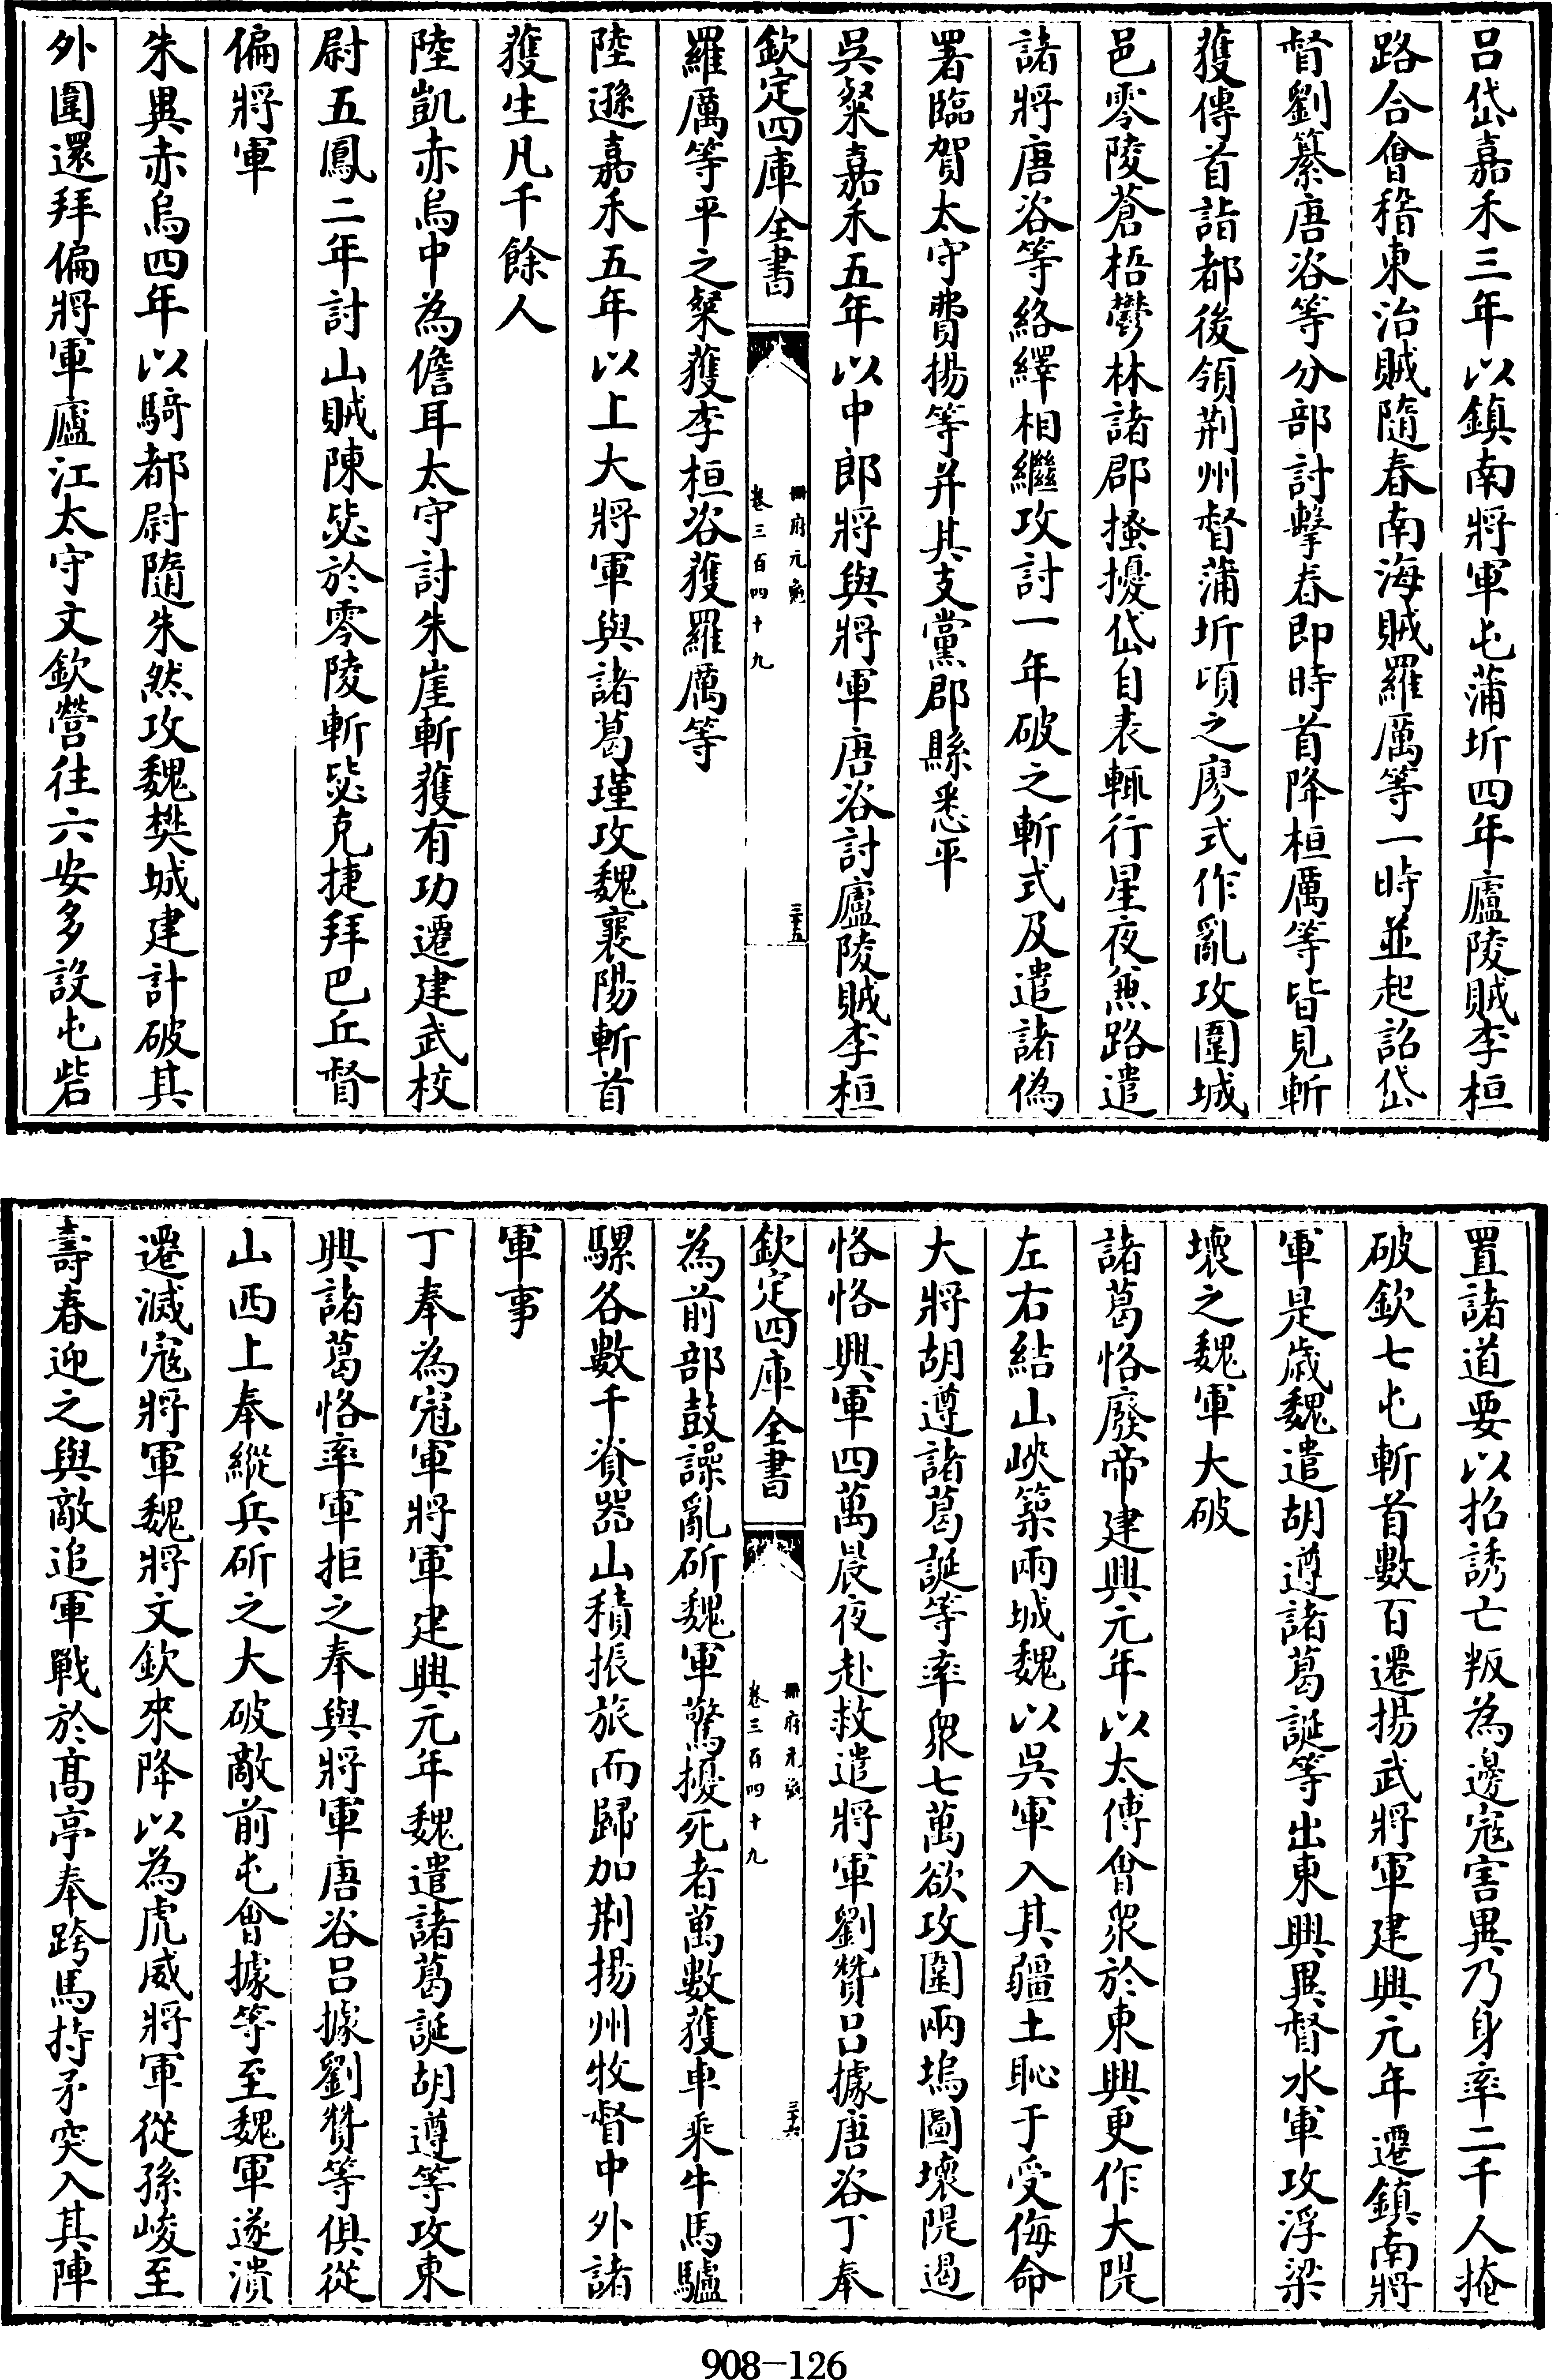 吕岱嘉禾三年以鎮南將軍屯蒲圻四年廬陵賊李桓
路合會稽東治賊隨春南海賊羅厲等一時並起詔岱
督劉纂唐咨等分部討擊春即時首降桓厲等皆見斬
獲傳首詣都後領荆州督蒲圻頃之廖式作亂攻圍城
邑零陵蒼梧鬱林諸郡搔擾岱自表輒行星夜兼路遣
諸將唐咨等絡繹相繼攻討一年破之斬式及遣諸偽
署臨賀太守費揚等并其支黨郡縣悉平
吳粲嘉禾五年以中郎將與將軍唐咨討廬陵賊李桓
欽定四庫全書
册府元龜
卷三百四十九
三十五
羅厲等平之粲獲李桓咨獲羅厲等
陸遜嘉禾五年以上大將軍與諸葛瑾攻魏襄陽斬首
獲生凡千餘人
陸凱赤烏中為儋耳太守討朱崖斬獲有功遷建武校
尉五鳳二年討山賊陳毖於零陵斬毖克捷拜巴丘督
偏將軍
朱異赤烏四年以騎都尉隨朱然攻魏樊城建計破其
外圍還拜偏將軍廬江太守文欽營往六安多設屯砦
置諸道要以招誘亡叛為邊寇害異乃身率二千人掩
破欽七屯斬首數百遷揚武將軍建興元年遷鎮南將
軍是歲魏遣胡遵諸葛誕等出東興異督水軍攻浮梁
壞之魏軍大破
諸葛恪廢帝建興元年以太傅會衆於東興更作大隄
左右結山峽築兩城魏以吳軍入其疆土恥于受侮命
大將胡遵諸葛誕等率衆七萬欲攻圍兩塢圖壞隄遏
恪恪興軍四萬晨夜赴救遣將軍劉贊吕據唐咨丁奉
欽定四庫全書
册府元龜
卷三百四十九
三十六
為前部鼓譟亂斫魏軍驚擾死者萬數獲車乘牛馬驢
騾各數千資器山積振旅而歸加荆揚州牧督中外諸
軍事
丁奉為冠軍將軍建興元年魏遣諸葛誕胡遵等攻東
興諸葛恪率軍拒之奉與將軍唐咨吕據劉贊等俱從
山西上奉縱兵斫之大破敵前屯會據等至魏軍遂潰
遷滅寇將軍魏將文欽來降以為虎威將軍從孫峻至
壽春迎之與敵追軍戰於高亭奉跨馬持矛突入其陣
908-126